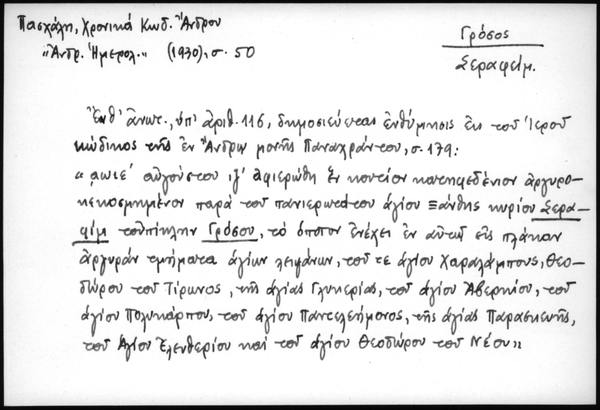 Πασχάλη, Χρονικά Κωδ. Ἄνδρου
"Ἀνδρ. Ἡμερολ." (1930), σ. 50
Γρόσος
Σεραφείμ.
Ἐνθ' ἀνωτ., ὑπ' ἀριθ. 116, δημοσιεύεται ἐνθύμησις ἐκ τοῦ Ἱεροῦ
κώδικος τῆς ἐν Ἄνδρῳ μονῆς Παναχράντου, σ. 179:
"͵αωιε' αὐγούστου ιζ' ἀφιερώθη ἓν κοντεῖον κατηφεδένιον ἀργυρο-
κεκοσμημένον παρὰ τοῦ πανιερωτάτου ἁγίου Ξάνθης κυρίου Σερα-
φὶμ τοὐπίκλην Γρόσου, τὸ ὁποῖον ἐνέχει ἐν αὐτῷ εἰς πλάκαν
ἀργυρὰν τμήματα ἁγίων λειψάνων, τοῦ τε ἁγίου Χαραλάμπους, Θεο-
δώρου τοῦ Τίρωνος, τῆς ἁγίας Γλυκερίας, τοῦ ἁγίου Ἀβερκίου, τοῦ
ἁγίου Πολυκάρπου, τοῦ ἁγίου Παντελεήμονος, τῆς ἁγίας Παρασκευῆς,
τοῦ Ἁγίου Ἐλευθερίου καὶ τοῦ ἁγίου Θεοδώρου τοῦ Νέου"